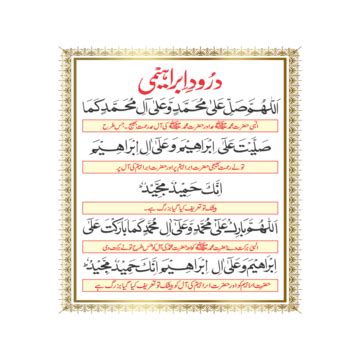 درود ابراہیمی
اَللّٰهُمَّ صَلِّ عَلٰی مُحَمَّدٍ وَّعَلٰٓی اٰلِ مُحَمَّدٍ کَمَا
الٰہی حضرت محمد ﷺ پر اور حضرت محمد ﷺ کی آل پر رحمت بھیج، جس طرح
صَلَّیْتَ عَلٰٓی اِبْرَاهِیْمَ وَعَلٰٓی اٰلِ اِبْرَاهِیْمَ
تو نے رحمت بھیجی حضرت ابراہیم پر اور حضرت ابراہیم کی آل پر
اِنَّکَ حَمِیْدٌ مَّجِیْدٌ
بیشک تو تعریف کیا گیا بزرگ ہے۔
اَللّٰهُمَّ بَارِکْ عَلٰی مُحَمَّدٍ وَّعَلٰٓی اٰلِ مُحَمَّدٍ کَمَا بَارَکْتَ عَلٰٓی
الٰہی برکت دے حضرت محمد ﷺ کو اور حضرت محمد ﷺ کی آل کو جس طرح تو نے برکت دی
اِبْرَاهِیْمَ وَعَلٰٓی اٰلِ اِبْرَاهِیْمَ اِنَّکَ حَمِیْدٌ مَّجِیْدٌ
حضرت ابراہیم کو اور حضرت ابراہیم کی آل کو بیشک تو تعریف کیا گیا بزرگ ہے